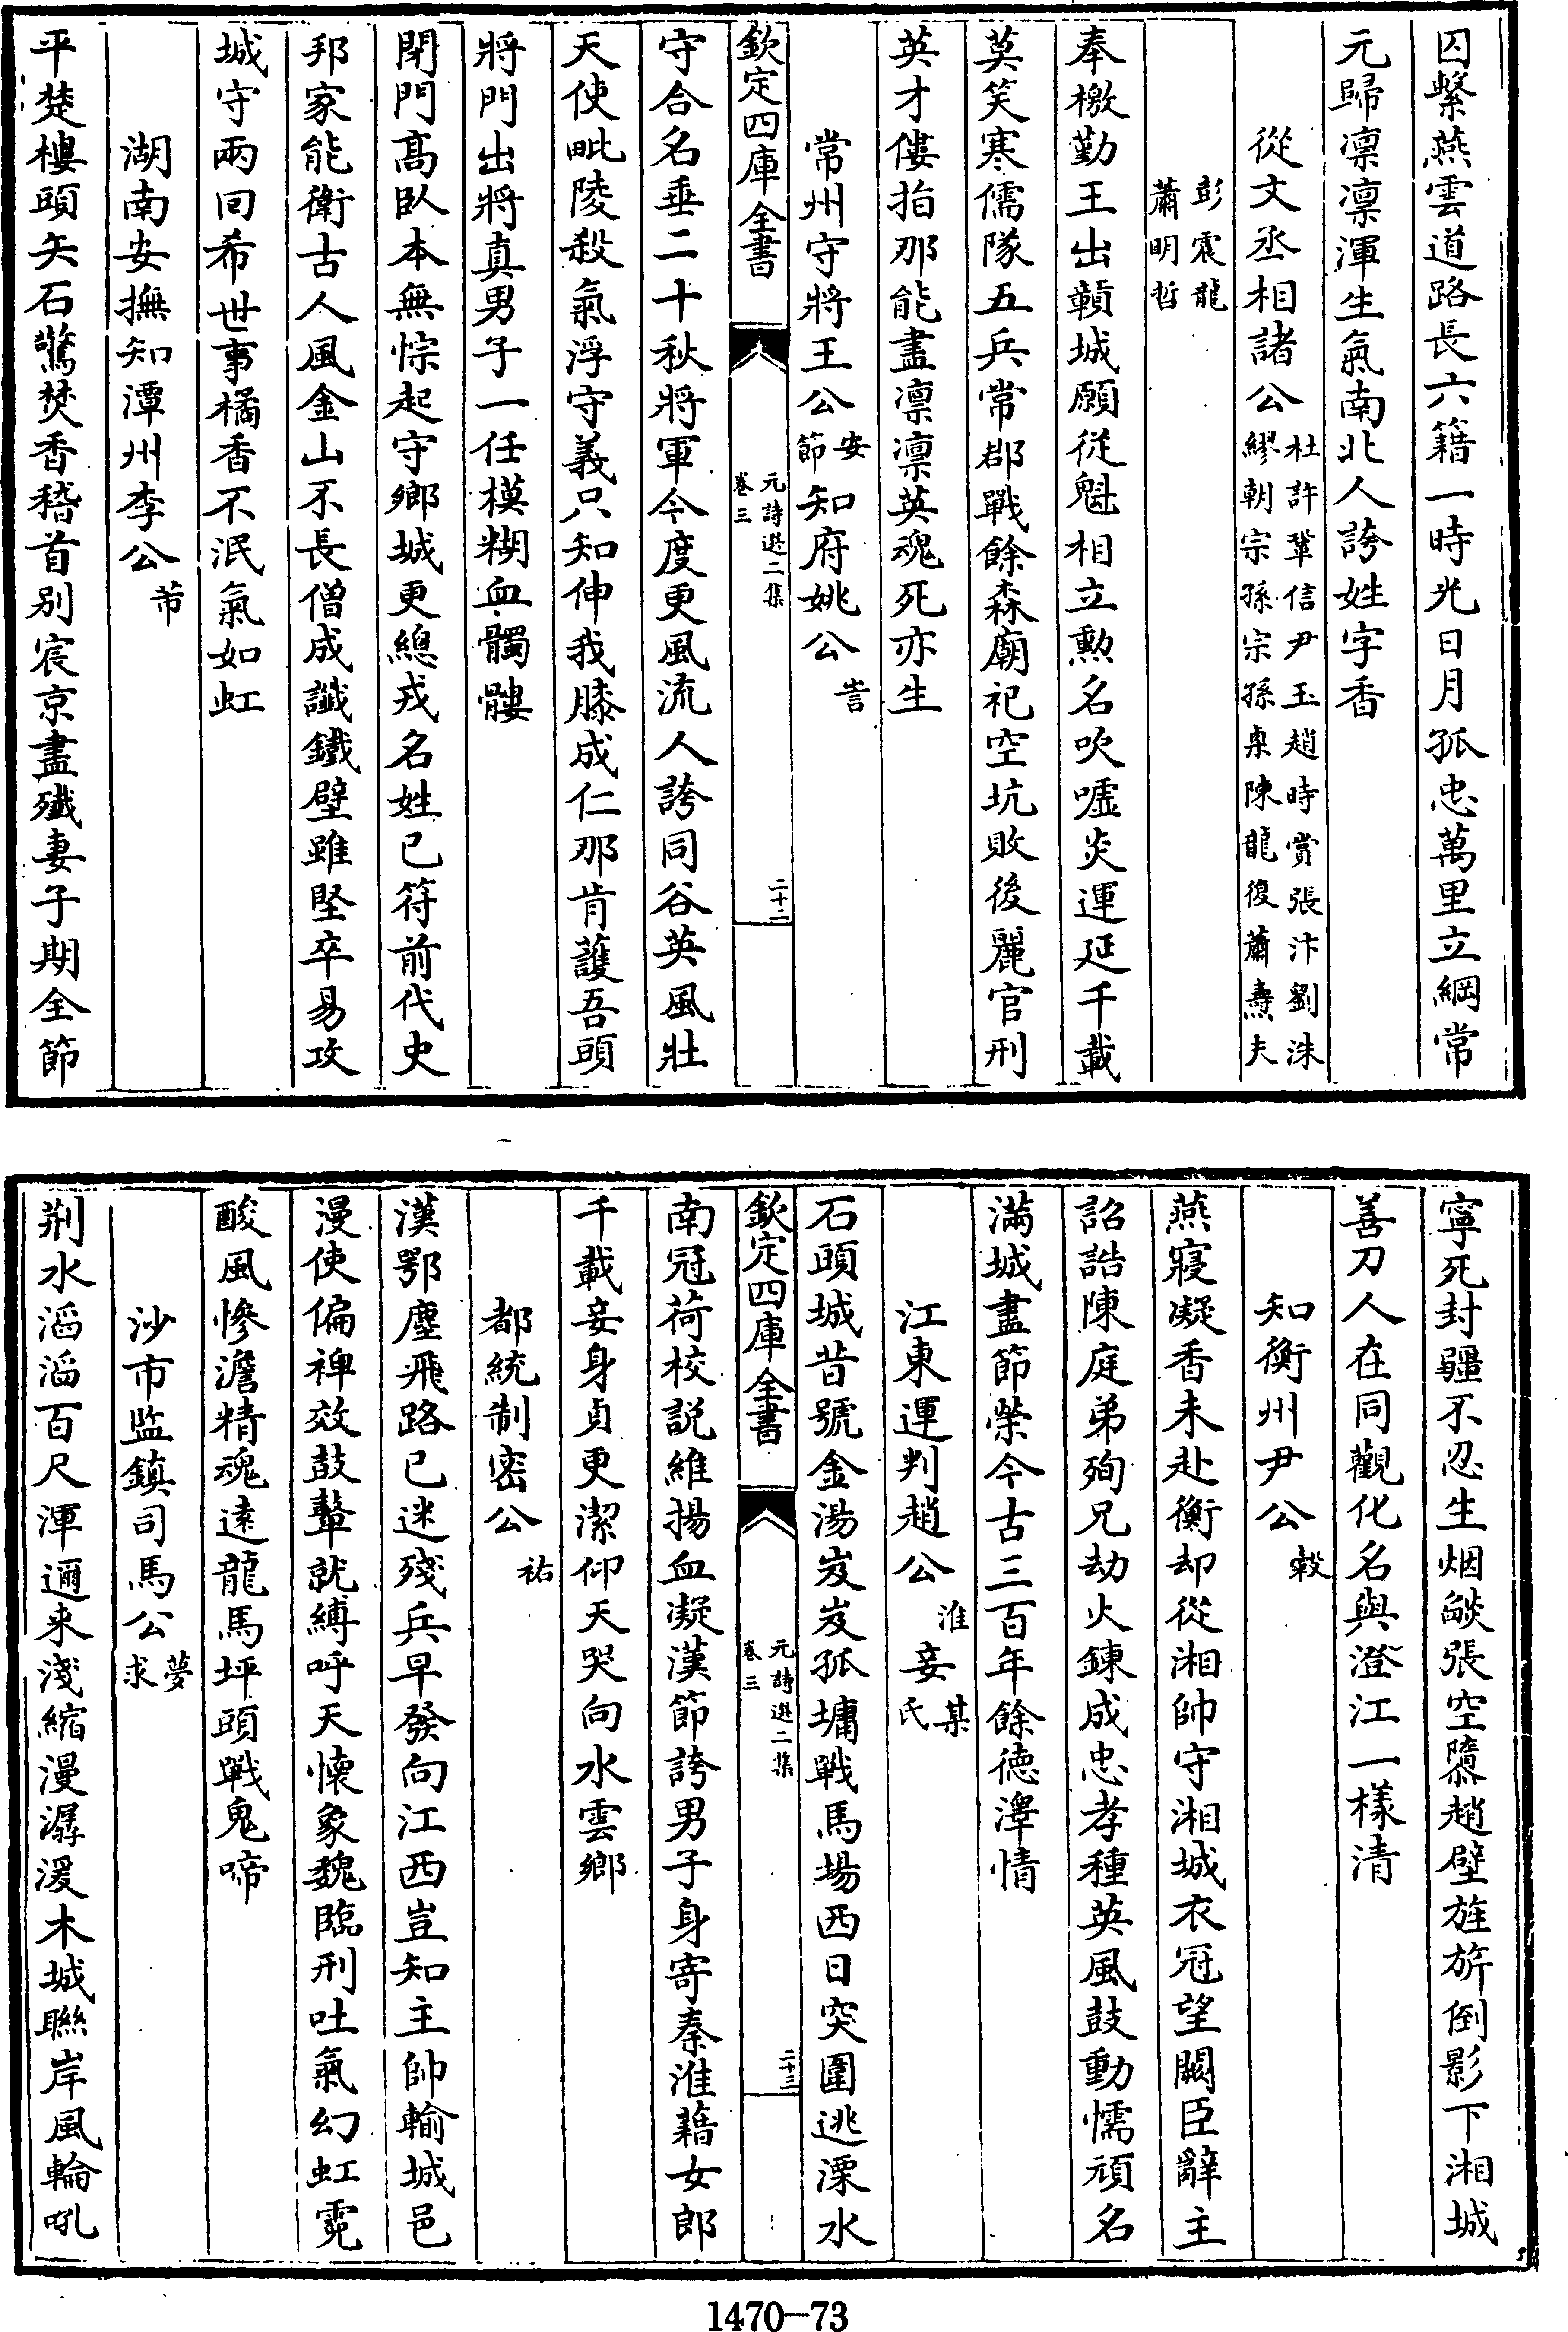 囚繫燕雲道路長六籍一時光日月孤忠萬里立綱常
元歸凛凛渾生氣南北人誇姓字香
從文丞相諸公杜許鞏信尹玉趙時賞張汴劉洙
繆朝宗孫宗孫㮚陳龍復蕭燾夫
彭震龍
蕭明哲
奉檄勤王出贑城願從魁相立勲名吹嘘炎運延千載
莫笑寒儒隊五兵常郡戰餘森廟祀空坑敗後麗官刑
英才僂指那能盡凛凛英魂死亦生
常州守將王公安節知府姚公訔
欽定四庫全書
元詩選二集
卷三
二十二
守合名垂二十秋將軍今度更風流人誇同谷英風壯
天使毗陵殺氣浮守義只知伸我膝成仁那肯護吾頭
將門出將真男子一任模糊血髑髏
閉門髙臥本無悰起守鄉城更總戎名姓已符前代史
邦家能衛古人風金山不長僧成讖鐵壁雖堅卒易攻
城守兩回希世事橘香不泯氣如虹
湖南安撫知潭州李公芾
平楚樓頭矢石驚焚香稽首別宸京盡殱妻子期全節
寧死封疆不忍生烟燄張空隳趙壁旌旂倒影下湘城
善刀人在同觀化名與澄江一樣清
知衡州尹公穀
燕寢凝香未赴衡却從湘帥守湘城衣冠望闕臣辭主
詔誥陳庭弟殉兄劫火鍊成忠孝種英風鼓動懦頑名
滿城盡節榮今古三百年餘德澤情
江東運判趙公淮妾某氏
石頭城昔號金湯岌岌孤墉戰馬場西日突圍逃溧水
欽定四庫全書
元詩選二集
卷三
二十三
南冠荷校説維揚血凝漢節誇男子身寄秦淮藉女郎
千載妾身貞更潔仰天哭向水雲鄉
都統制密公祐
漢鄂塵飛路已迷殘兵早發向江西豈知主帥輸城邑
漫使偏禆效鼓鼙就縛呼天懷象魏臨刑吐氣幻虹霓
酸風慘澹精魂遠龍馬坪頭戰鬼啼
沙市監鎮司馬公夢求
荆水滔滔百尺渾邇来淺縮漫潺湲木城聯岸風輪吼
1470-73